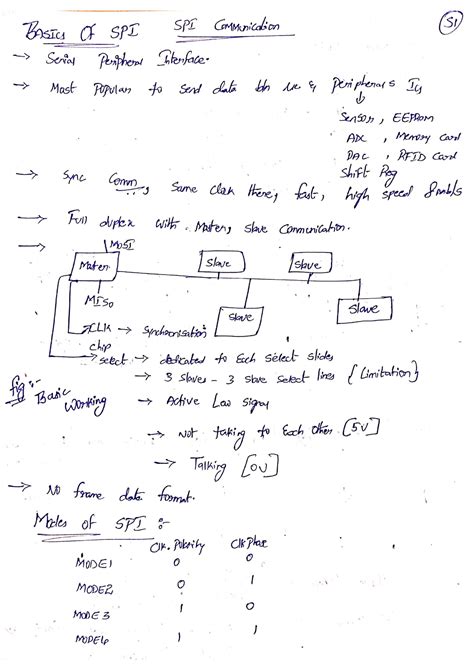 SPI Communication
S1
Basics Of SPI
→ Serial Peripheral Interface.
→ Most Popular to send data btn uc & Peripherals ICs
Sensor, EEPROM
ADC, Memory Card
DAC, RFID Card
Shift Reg
→ Sync Comm, Same Clock there, fast, high speed 8mb/s
→ Full duplex with Master, Slave Communication.
→ MOSI
Master Slave Slave
MISO Slave Slave
CLK → Synchronisation
chip
select → dedicated to Each select slides
→ 3 slaves - 3 slave select lines {Limitation}
fig:- Basic Working
→ Active Low signal
→ Not talking to Each Other [5V]
→ Talking [0V]
→ No frame data format.
Modes of SPI :-
Clk. Polarity Clk Phase
MODE1 0 0
MODE2 0 1
MODE3 1 0
MODE4 1 1